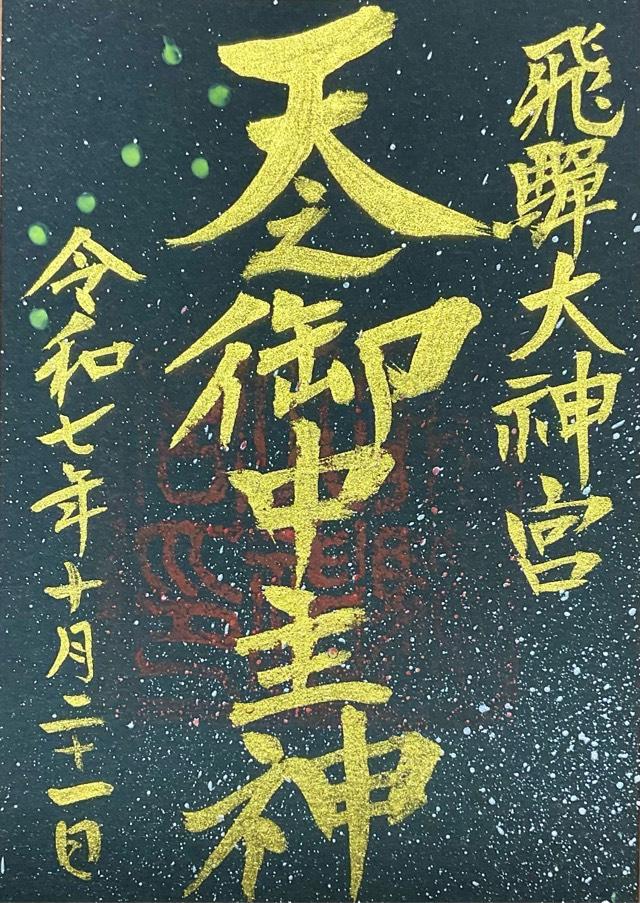 飛騨大神宮
天之御中主神
令和七年十月二十一日